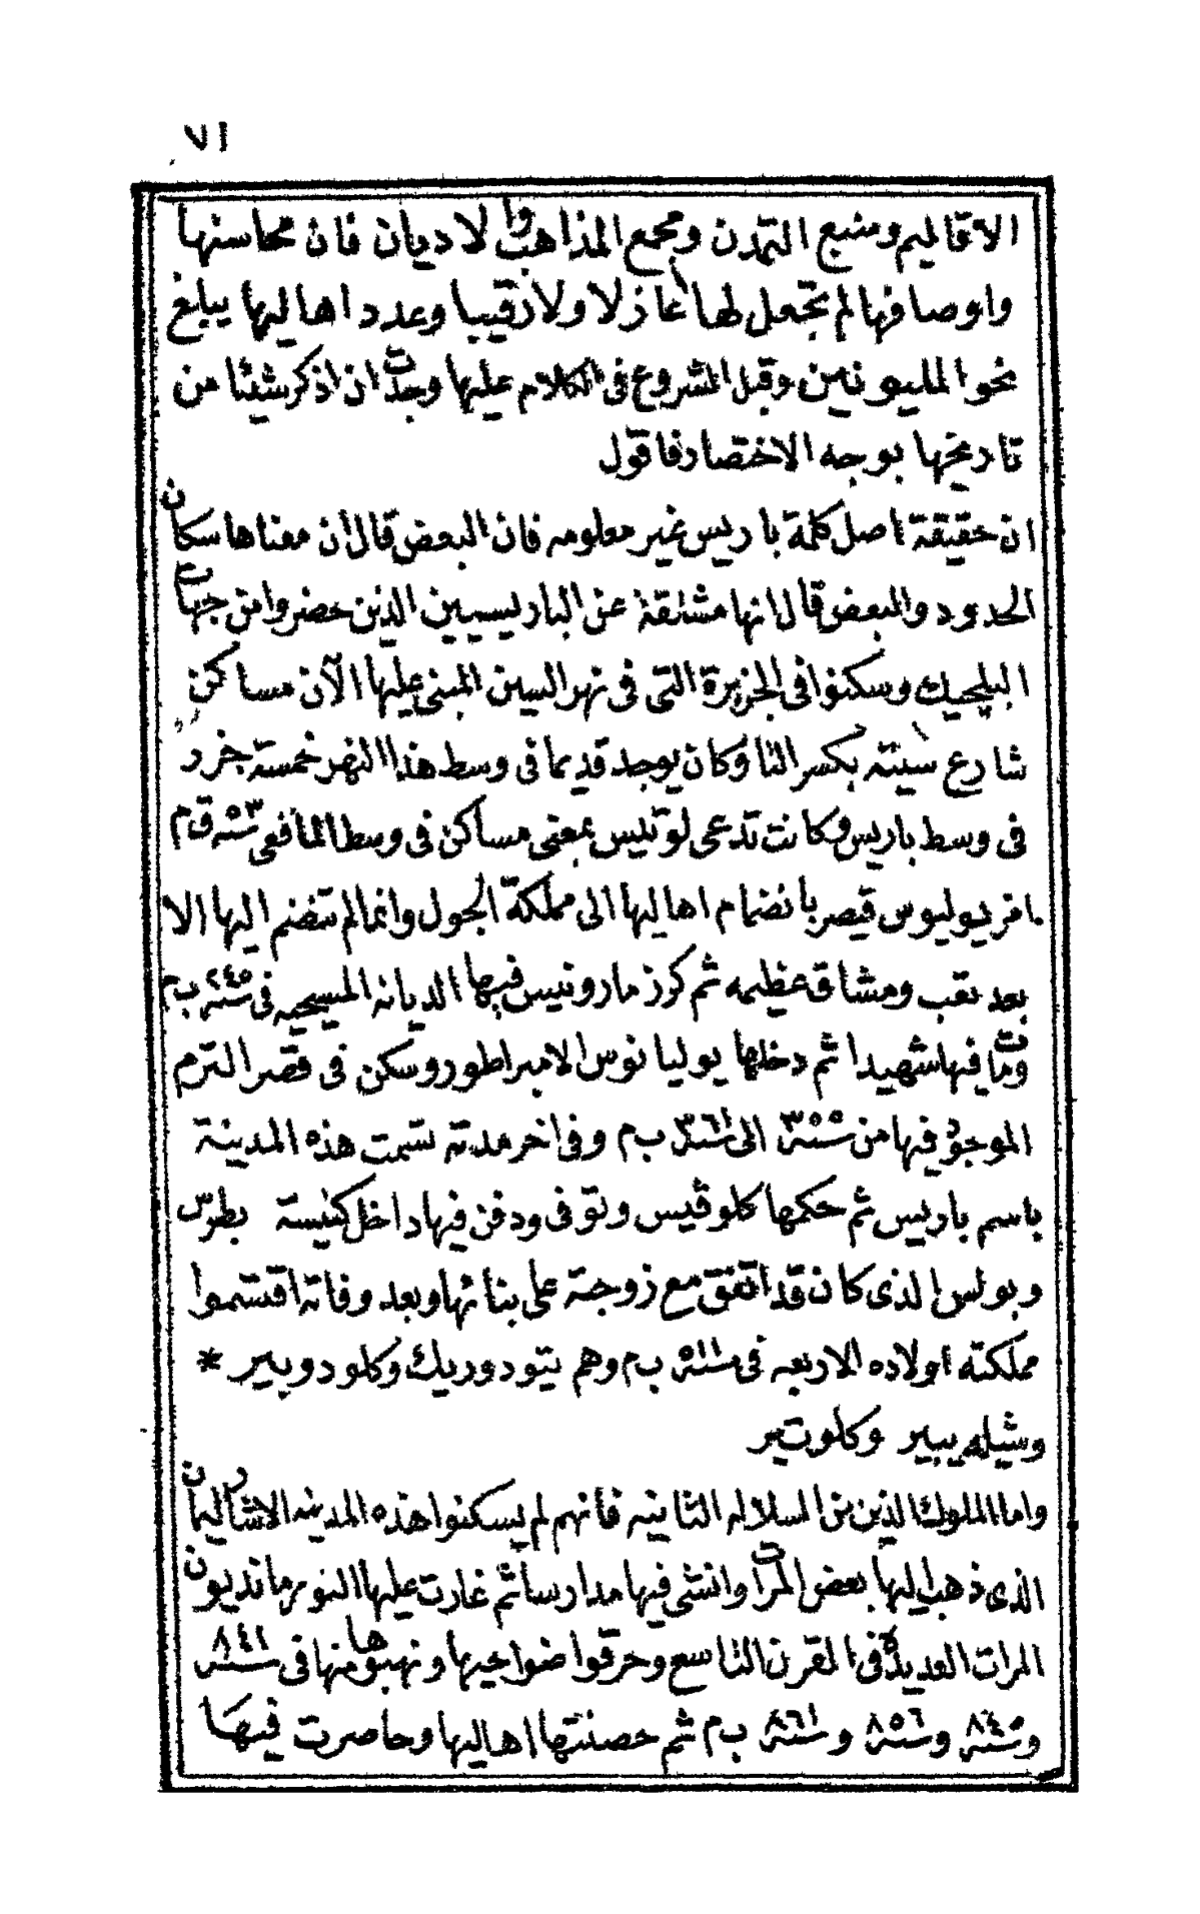 ٧١
الاقاليم ومنبع التمدن ومجمع المذاهب والاديان فان محاسنها
واوصافها لم تجعل لها عازلا ولا رقيبا وعدد اهاليها يبلغ
نحو المليونين وقبل المشروع فى الكلام عليها وجدت ان اذكر شيئا من
تاريخها بوجه الاختصار فاقول
ان حقيقة اصل كلمة باريس غير معلومه فان البعض قال أن معناها سكان
الحدود والبعض قال انها مشتقة عن الباريسيين الذين حضروا من جهات
البلجيك وسكنوا فى الجزيرة التى فى نهر السين المبنى عليها الآن مساكن
شارع سيته بكسر التا وكان يوجد قديما فى وسط هذا النهر خمسة جزر
فى وسط باريس وكانت تدعى لوتيس بمعنى مساكن فى وسط الما ففى سنة ٥٣ ق م
امر يوليوس قيصر بانضمام اهاليها الى مملكة الجول وانما لم تنضم اليها الا
بعد تعب ومشاق عظيمه ثم كرز مار ونيس فيها الديانه المسيحيه فى سنة ٢٤٥ ب م
ومات فيها شهيدا ثم دخلها يوليانوس الامبراطور وسكن فى قصر الترم
الموجود فيها من سنة ٣٥٥ الى سنة ٣٦١ ب م وفى اخر مدته تسمت هذه المدينة
باسم باريس ثم حكمها كلوڤيس وتوفى ودفن فيها داخل كنيسة بطرس
وبولس الذى كان قد اتفق مع زوجته على بنائها وبعد وفاته اقتسموا
مملكته اولاده الاربعه فى سنة ٥١١ ب م وهم تيودوريك وكلودوبير *
وشيلدبيير وكلوتير
واما الملوك الذين من السلاله الثانيه فأنهم لم يسكنوا هذه المدينه الا شارليمان
الذى ذهب اليها بعض المرات وانشى فيها مدارسا ثم غارت عليها النورمانديون
المرات العديدة فى القرن التاسع وحرقوا ضواحيها ونهبوها منها فى سنة ٨٤١
وسنة ٨٤٥ وسنة ٨٥٦ وسنة ٨٦١ ب م ثم حصنتها اهاليها وحاصرت فيها